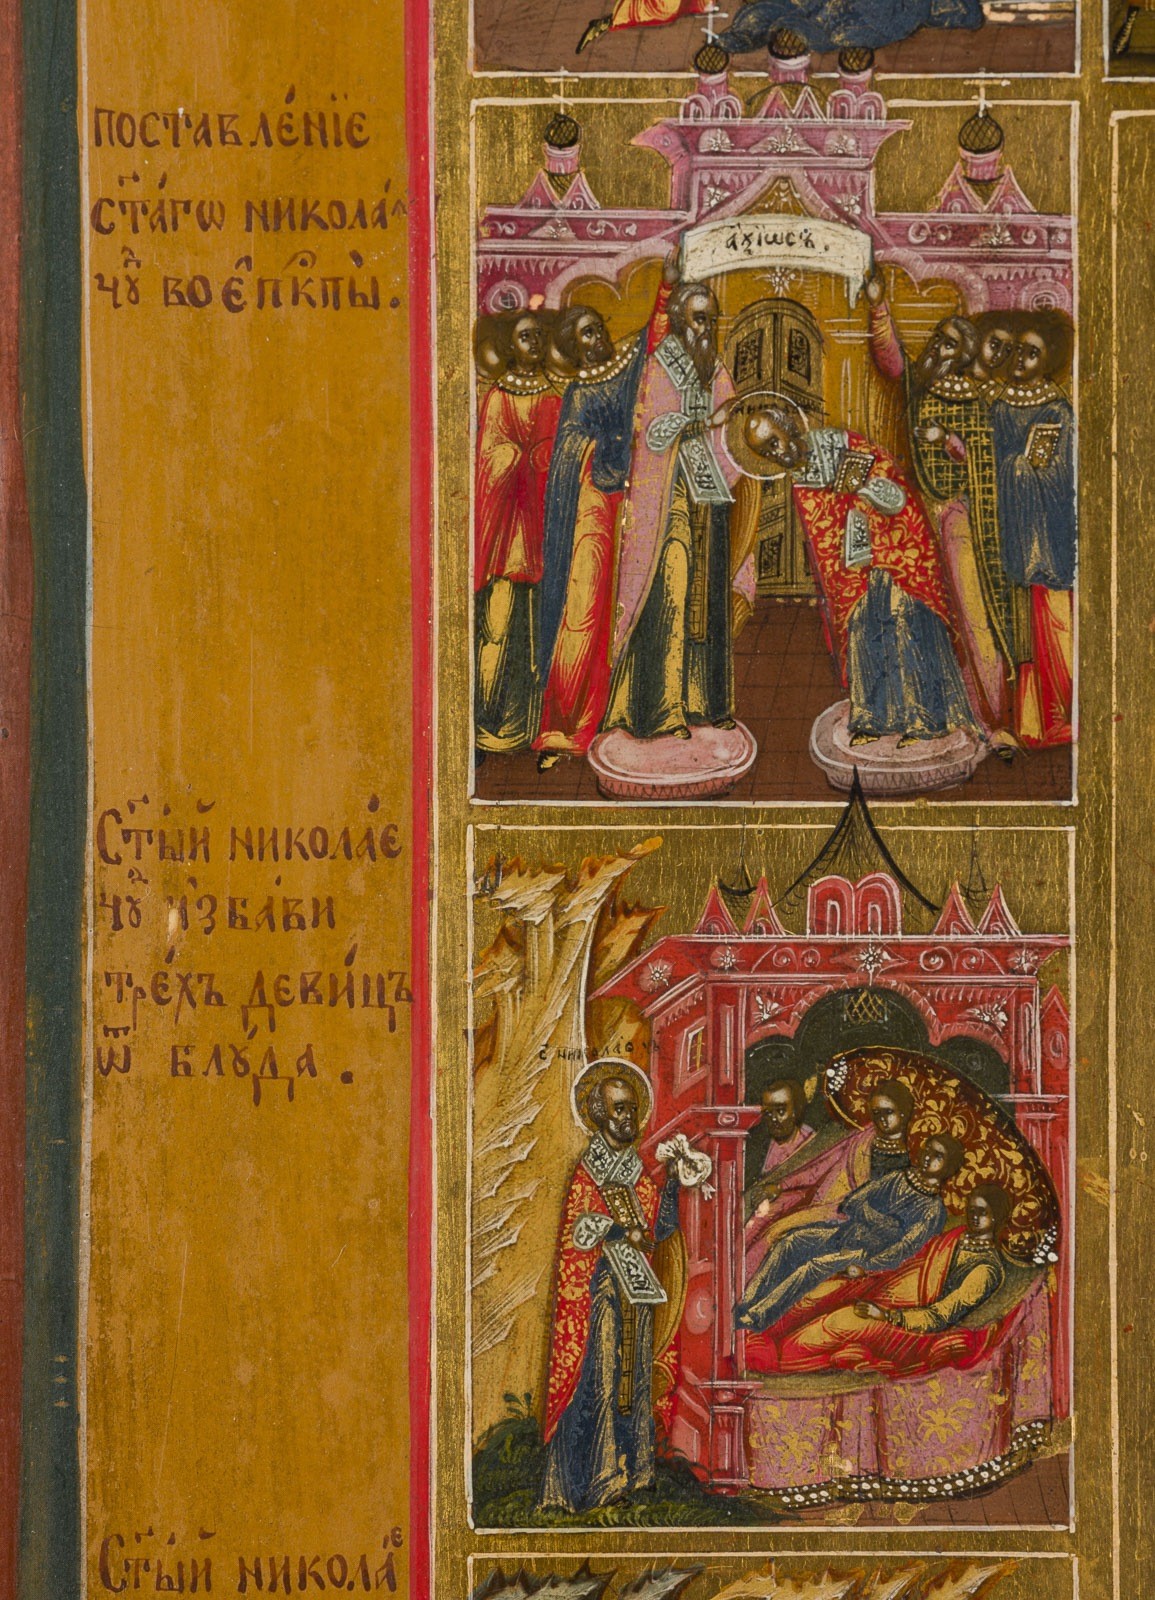 поставле́нїе
ст҃а́гѡ никола́
чꙋ҃ во є҆пк҃пы̀.
а҆ѯїѡсъ.
Ст҃ы́й никола́е
чꙋ҃ и҆зба́ви
тре́хъ деви́цъ
ѿ блꙋ́да.
с никола ч
Ст҃ы́й никола́е